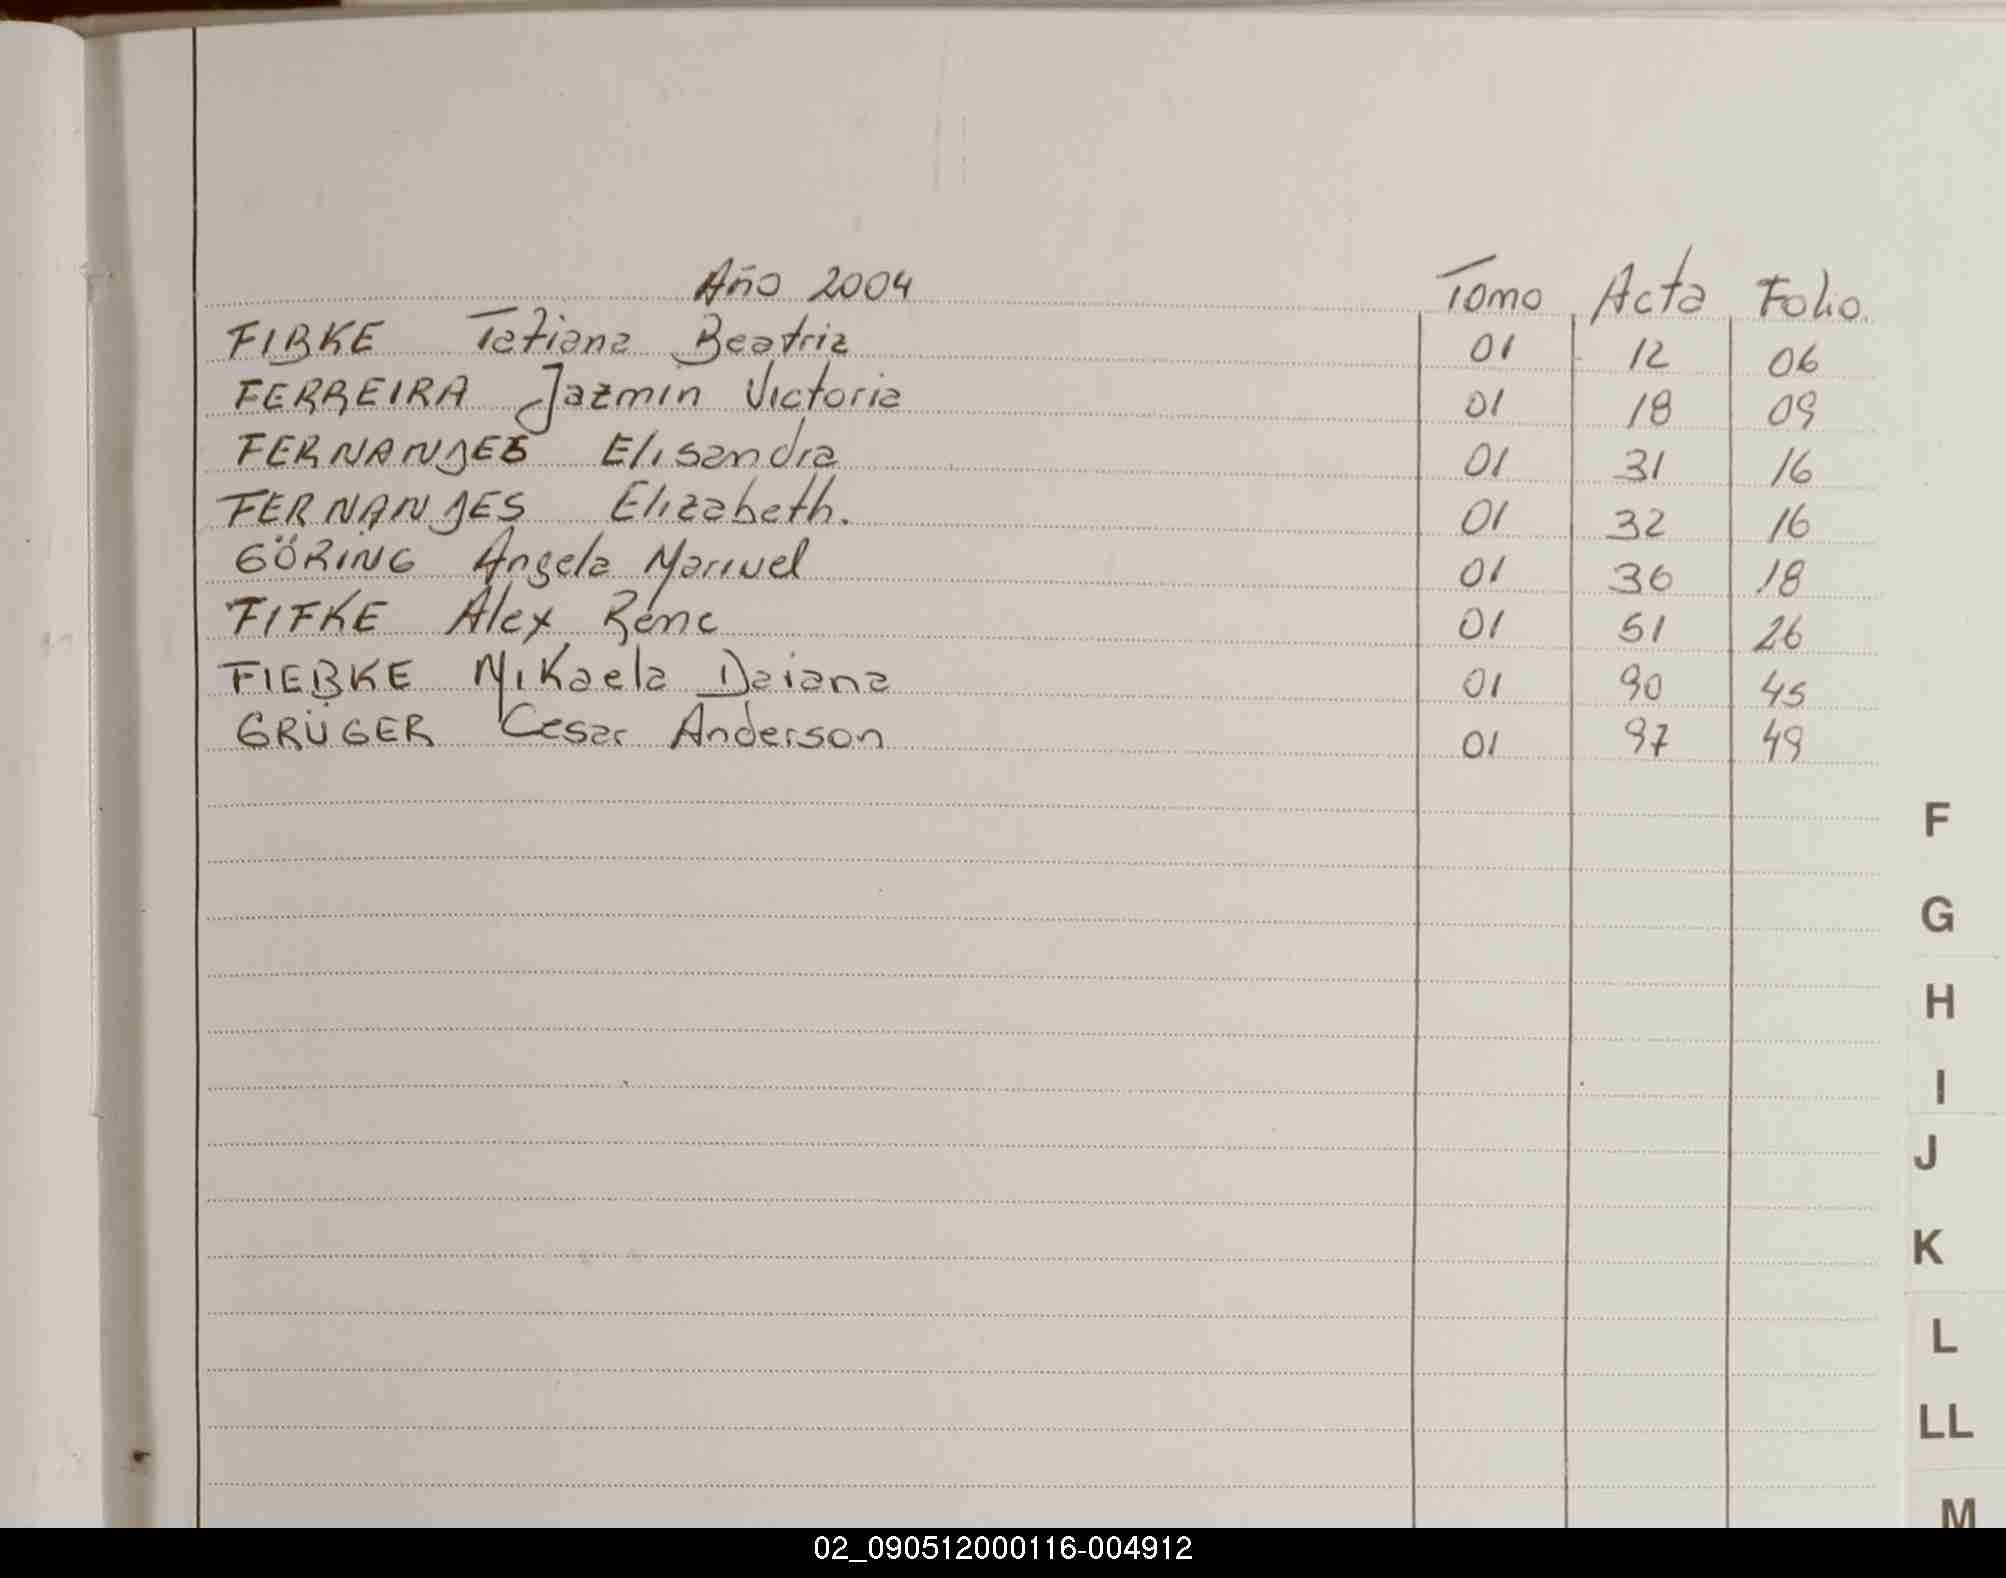 Año 2004 Tomo Acta Folio.
FIBKE Tatiana Beatriz 01 12 06
FERREIRA Jazmin Victoria 01 18 09
FERNANDES Elisandra 01 31 16
FERNANDES Elizabeth. 01 32 16
GÖRING Angela Marivel 01 36 18
FIFKE Alex Rene 01 51 26
FIEBKE Mikaela Daiana 01 90 45
GRÜGER Cesar Anderson 01 97 49
F
G
H
I
J
K
L
LL
M
02_090512000116-004912